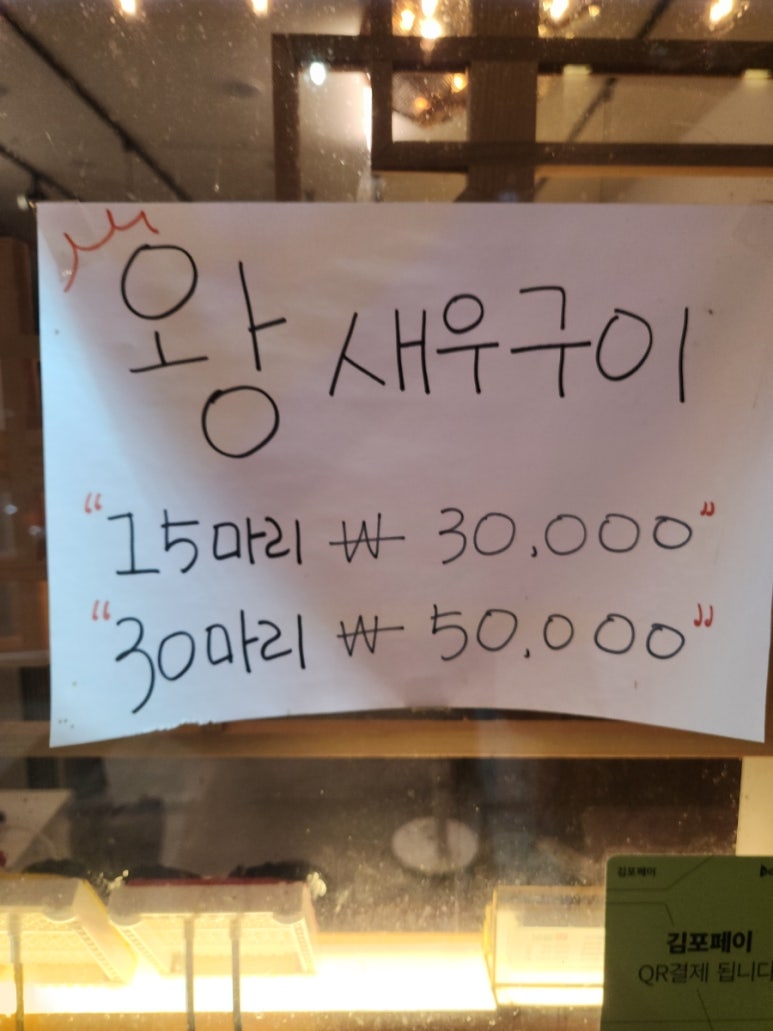 왕 새우구이
"15마리 ₩ 30,000"
"30마리 ₩ 50,000"
김포페이
김포페이
QR결제 됩니다